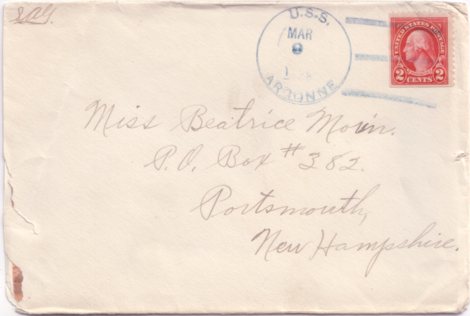 U.S.S.
MAR
8
ARGONNE
UNITED STATES POSTAGE
2 CENTS 2
Miss Beatrice Morin.
P.O. Box #382.
Portsmouth,
New Hampshire.